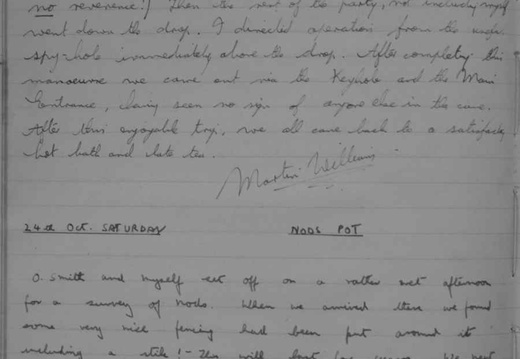 no reverence!) Then the rest of the party, not including myself
went down the drop. I directed operations from the
spy-hole immediately above the drop. After completing this
manoeuvre we came out via the Keyhole and the Main
Entrance, having seen no sign of anyone else in the cave.
After this enjoyable trip, we all came back to a satisfactory
hot bath and late tea.
Martin Williams
24th OCT. SATURDAY NODS POT
O. Smith and myself set off on a rather wet afternoon
for a survey of Nods. When we arrived there we found
some very nice fencing had been put around it
including a stile! - This will